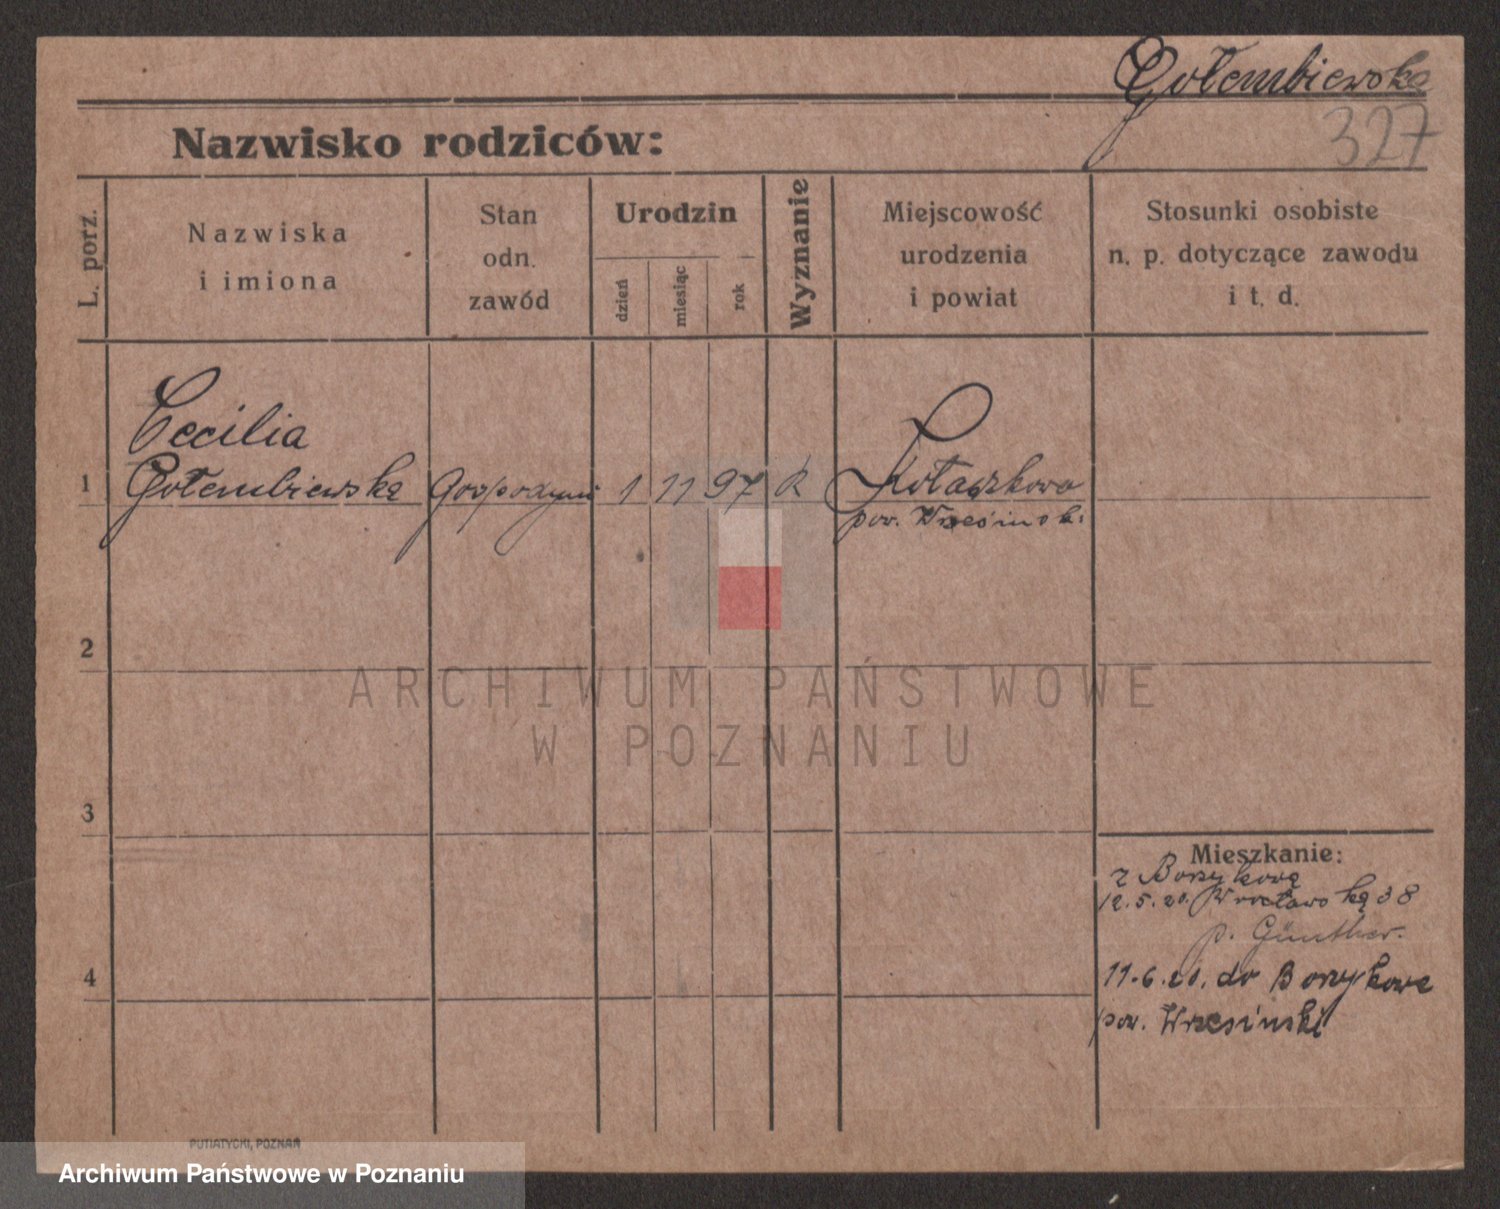 Gołembiewska
327
Nazwisko rodziców:
L. porz.
Nazwiska
i imiona
Stan
odn.
zawód
Urodzin
dzień
miesiąc
rok
Wyznanie
Miejscowość
urodzenia
i powiat
Stosunki osobiste
n. p. dotyczące zawodu
i t. d.
Cecilia
1 Gołembiewska Gospodyni 1 11 97 R
pow. Wrzesińsk.
2
ARCHIWUM PAŃSTWOWE
W POZNANIU
3
Mieszkanie:
z Borzykową
12.5.20. Wrocławską 38
p. Günther.
4
11.6.20. do Borzykowe
pow. Wrzesiński
PUTIATYCKI, POZNAŃ
Archiwum Państwowe w Poznaniu